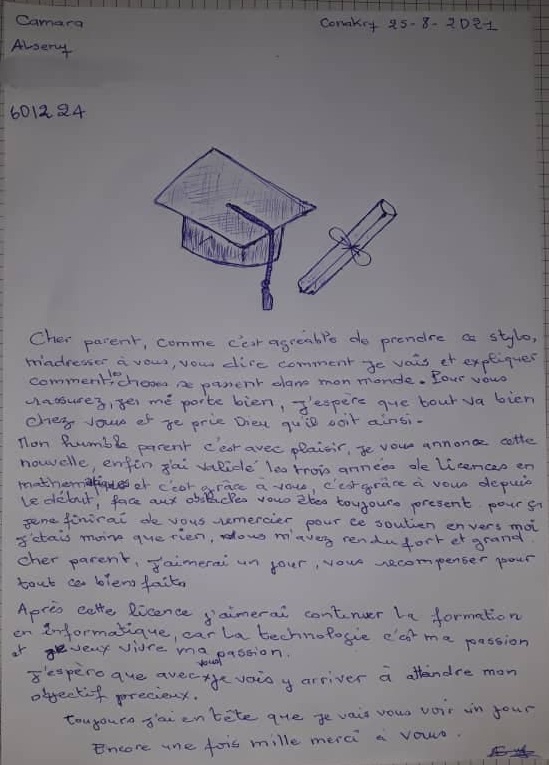 Camara
Conakry 25-8-2021
Alseny
601224
Cher parent, comme c'est agréable de prendre ce stylo,
m'adresser à vous, vous dire comment je vais et expliquer
comment les choses se passent dans mon monde. Pour vous
rassurez, je me porte bien, j'espère que tout va bien
chez vous et je prie Dieu qu'il soit ainsi.
Mon humble parent c'est avec plaisir, je vous annonce cette
nouvelle, enfin j'ai validé les trois années de licences en
mathématiques et c'est grâce à vous, c'est grâce à vous depuis
le début, face aux obstacles vous êtes toujours present pour ça
je ne finirai de vous remercier pour ce soutien en vers moi
j'étais moins que rien, vous m'avez rendu fort et grand
cher parent, j'aimerai un jour, vous recompenser pour
tout ces biens faits
Après cette licence j'aimerai continuer la formation
en informatique, car la technologie c'est ma passion
et je veux vivre ma passion.
J'espère que avec vous je vais y arriver à atteindre mon
objectif precieux.
toujours j'ai en tête que je vais vous voir un jour
Encore une fois mille merci à vous.